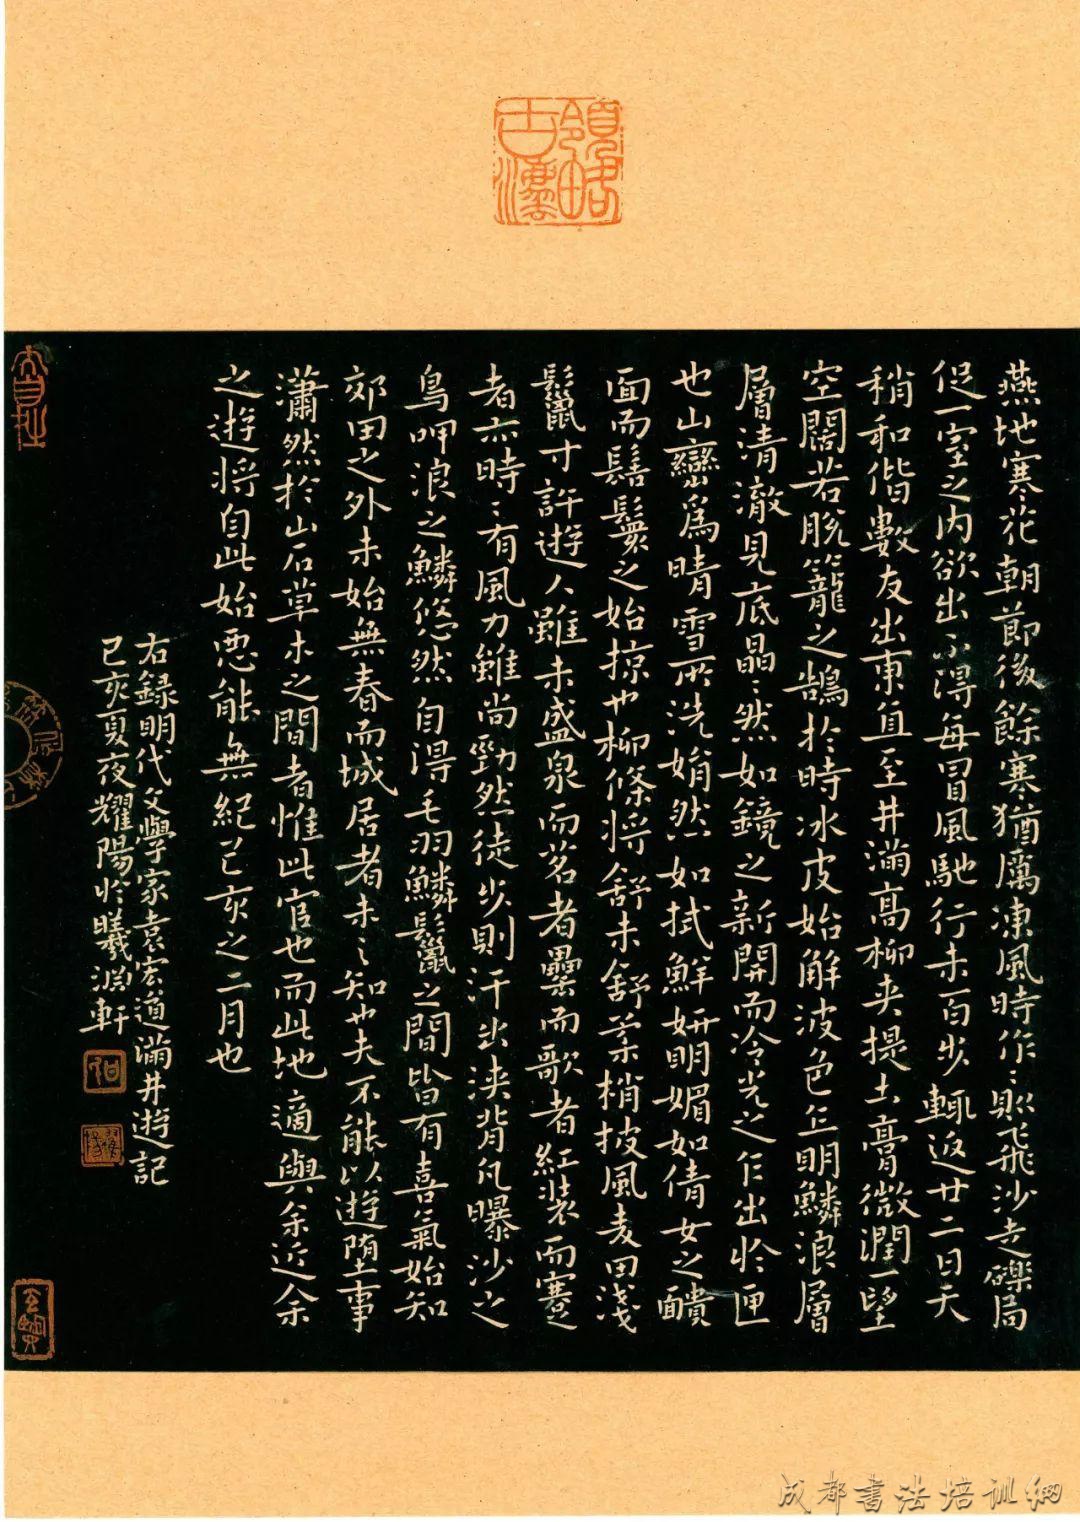 燕地寒花朝節後餘寒猶厲凍風時作作則飛沙走礫局
促一室之内欲出不得每冒風馳行未百步輒返廿二日天
稍和偕數友出東直至井滿高柳夾提土膏微潤一望
空闊若脫籠之鵠於時冰皮始解波色乍明鱗浪層
層清澈見底晶〻然如鏡之新開而冷光之乍出於匣
也山巒為晴雪所洗娟然如拭鮮妍明媚如倩女之靧
面而髻鬟之始掠也柳條將舒未舒柔梢披風麦田淺
鬛寸許遊人雖未盛泉而茗者罍而歌者紅裝而蹇
者亦時〻有風力雖尚勁然徒步則汗出浹背凡曝沙之
鳥呷浪之鱗悠然自得毛羽鱗鬛之間皆有喜氣始知
郊田之外未始無春而城居者未之知也夫不能以遊堕事
瀟然於山石草木之間者惟此官也而此地適與余近余
之遊將自此始惡能無紀己亥之二月也
右録明代文學家袁宏道滿井遊記
己亥夏夜耀陽於曦淵軒
成都书法培训网